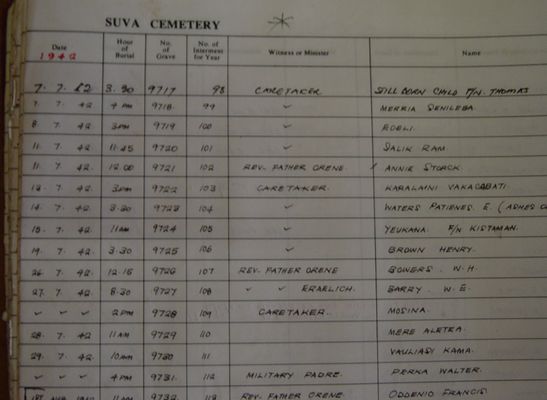 SUVA CEMETERY
Date Hour of Burial No. of Grave No. of Interment for Year Witness or Minister Name
1942
7. 7. 42 3.30 9717 98 CARETAKER STILL BORN CHILD F/N. THOMAS
7. 7. 42 4 PM 9718 99 ✓ MEREIA SENILEBA
8. 7. 42 3PM 9719 100 ✓ EDELI.
11. 7. 42 11.45 9720 101 ✓ SALIK RAM.
11. 7. 42. 12.00 9721 102 REV. FATHER ORENE. x ANNIE STORCK.
13. 7. 42 3PM 9722 103 CARETAKER. KARALAINI VAKACABATI
14. 7. 42. 3.30 9723 104 ✓ WATERS PATIENES. E. (ASHES
15. 7. 42 11AM 9724 105 ✓ YEUKANA. F/N KISTAMAN.
19. 7. 42 3.30 9725 106 ✓ BROWN HENRY.
26. 7. 42 12.15 9726 107 REV. FATHER ORENE BOWERS. W.H.
27. 7. 42. 8.30 9727 108 ✓ ✓ BARRY. W.E.
✓ ✓ ✓ 2PM 9728 109 CARETAKER. MOSINA.
28. 7. 42 11AM 9729 110 MERE ALETRA.
29. 7. 42. 10AM 9730 111 VAULIASY KAMA.
✓ ✓ ✓ 4PM 9731. 112 MILITARY PADRE. PERNA WALTER.
11AM 9732 113 REV. FATHER ORENE. ODDENIO FRANCIS